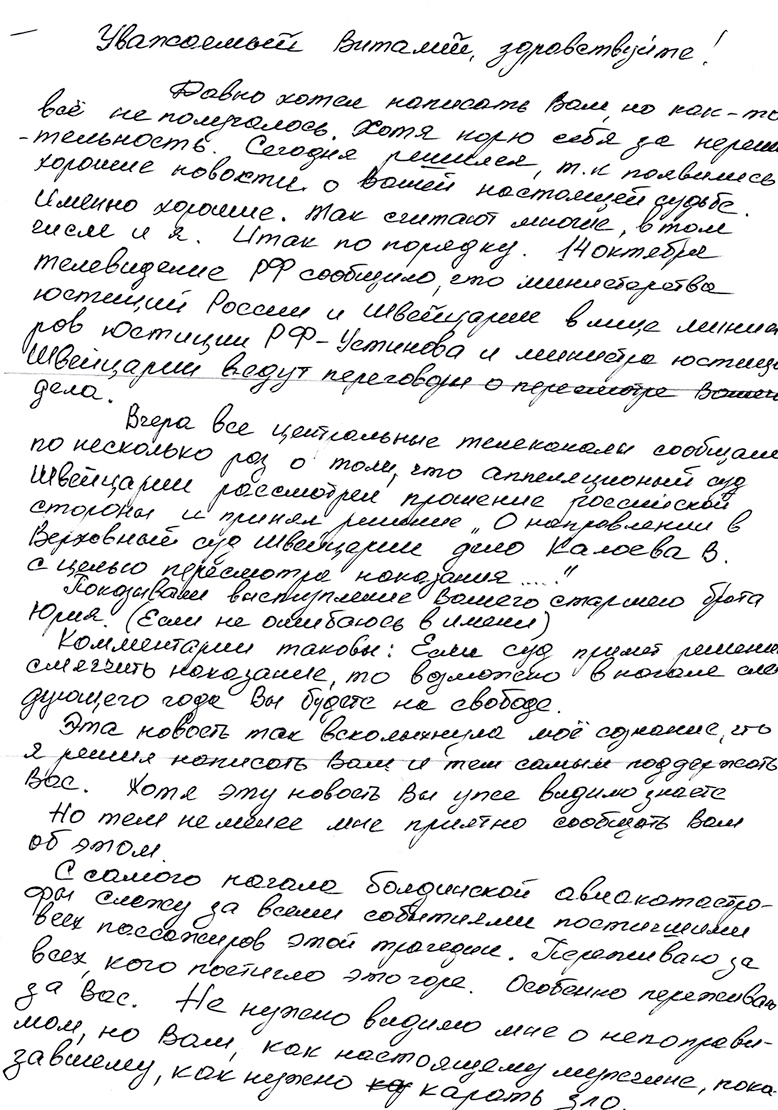 Уважаемый Виталий, здравствуйте!
Давно хотел написать Вам, но как-то
всё не получалось. Хотя корю себя за нереши
-тельность. Сегодня решился, т.к появились
хорошие новости о Вашей настоящей судьбе.
Именно хорошие. Так считают многие, в том
числе и я. Итак по порядку. 14 октября
телевидение РФ сообщило, что министерства
юстиций России и Швейцарии в лице минист
ров юстиции РФ-Устинова и министра юстици
Швейцарии ведут переговоры о пересмотре Вашего
дела.
Вчера все центральные телеканалы сообщали
по несколько раз о том, что аппеляционый суд
Швейцарии рассмотрел прошение российской
стороны и принял решение „О направлении в
Верховный суд Швейцарии дело Калоева В.
с целью пересмотра наказания ....."
Показывали выступление Вашего старшего брата
Юрия. (Если не ошибаюсь в имени)
Комментарии таковы: Если суд примет решение
смягчить наказание, то возможно в начале сле
дующего года Вы будете на свободе.
Эта новость так всколыхнула моё сознание, что
я решил написать Вам и тем самым поддержать
Вас. Хотя эту новость Вы уже видимо знаете
Но тем не менее мне приятно сообщать Вам
об этом.
С самого начала боденской авиакатастро-
фы слежу за всеми событиями постигшими
всех пассажиров этой трагедии. Переживаю за
всех, кого постигло это горе. Особенно переживаю
за Вас. Не нужно видимо мне о непоправи-
мом, но Вам, как настоящему мужчине, пока-
завшему, как нужно карать зло.